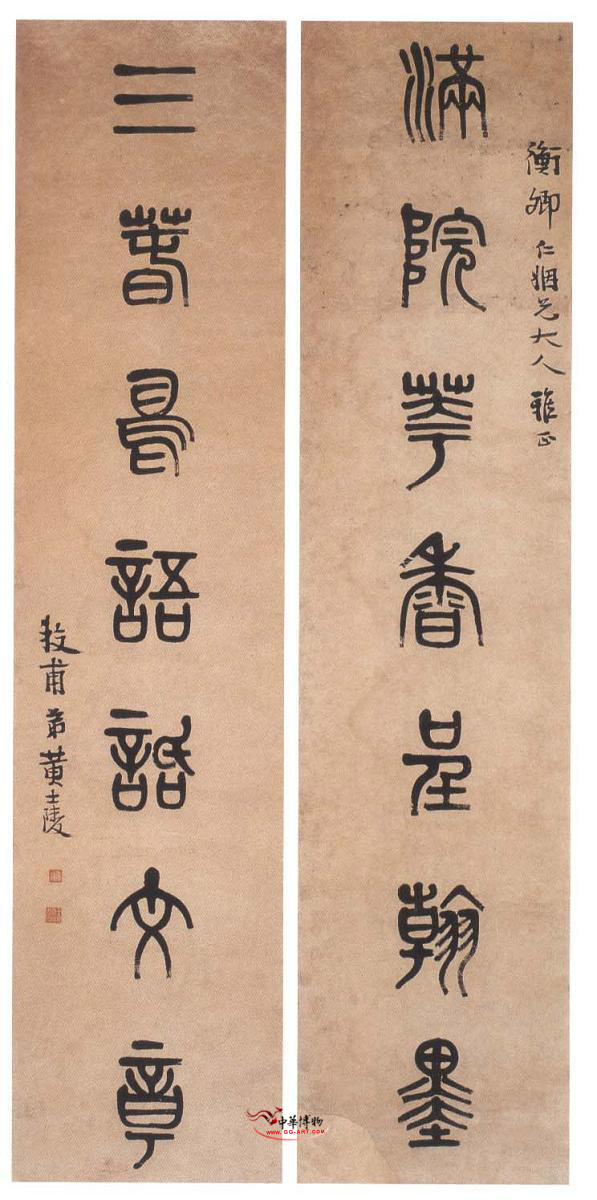 衡卿仁姻兄大人雅正
滿院華香呈翰墨
三春鳥語話文章
牧甫弟黃士陵
中華博物
WWW.GG-ART.COM